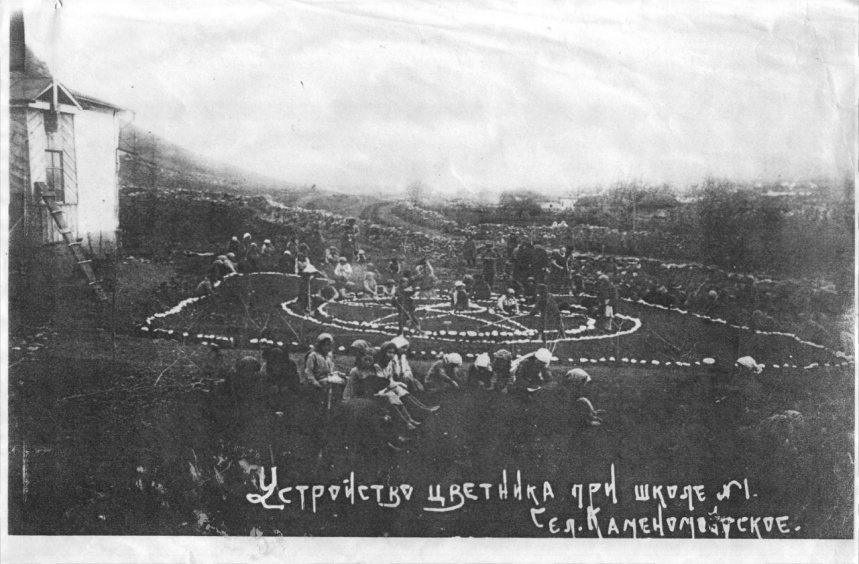 Устройство цветника при школе №1.
Сел. Каменомостское.